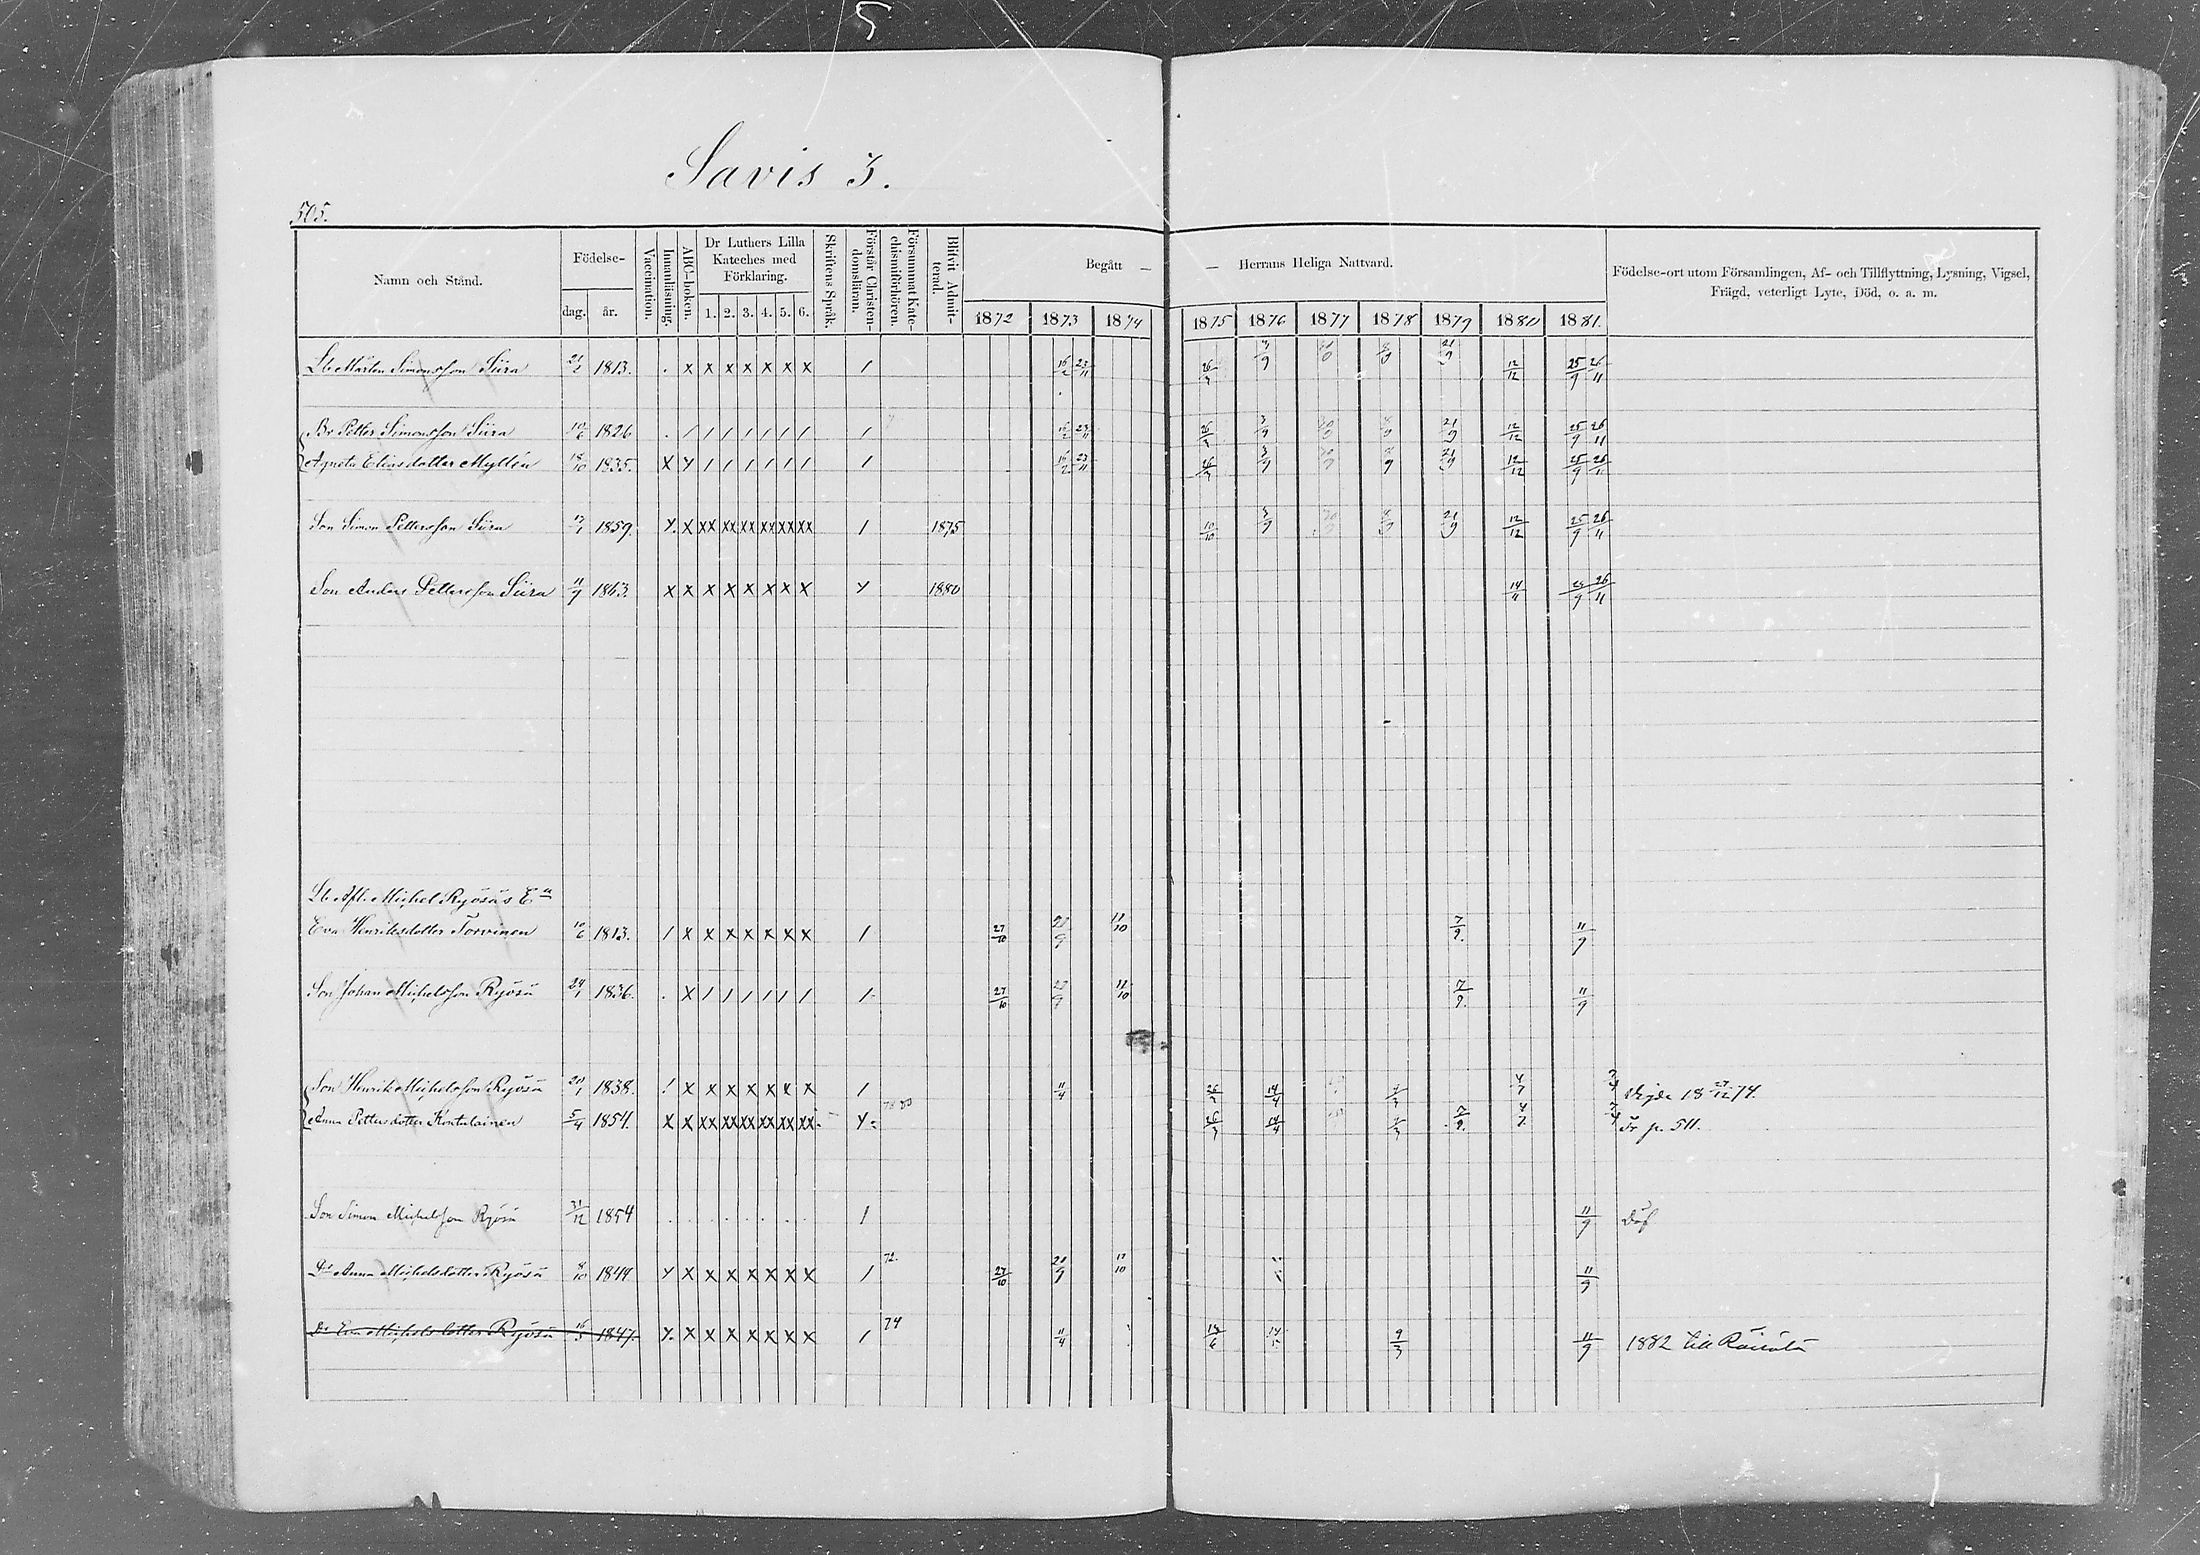 5
Savis 3.
505.
Namn och Stånd.
Födelse-
dag.
år.
Vaccination.
Innanläsning.
ABC-boken.
Dr Luthers Lilla
Kateches med
Förklaring.
1. 2. 3. 4. 5. 6.
Skriftens Språk.
Förstår Christen-
domsläran.
Försummat Kate-
chismiförhören.
Blifvit Admit-
terad.
Begått —
— Herrans Heliga Nattvard.
1872 1873 1874 1875 1876 1877 1878 1879 1880 1881.
Födelse-ort utom Församlingen, Af- och Tillflyttning, Lysning, Vigsel,
Frägd, veterligt Lyte, Död, o. a. m.
Lb Mårten Simonsson Siira 1813. . x x x x x x x / 16/2 23/11 26/3 3/9 21/9 12/12 25/9 26/11
Br Petter Simonsson Siira 10/6 1826 . / / / / / / / / 16/2 23/11 26/3 3/9 21/9 12/12 25/9 26/11
Agneta Eliasdotter Myllén 18/10 1835. x y / / / / / / / 16/2 23/11 26/3 3/9 21/9 12/12 25/9 26/11
Son Simon Pettersson Siira 1859. y. x xx xx xx xx xx xx / 1875 10/10 3/9 21/9 12/12 25/9 26/11
Son Anders Pettersson Siira 11/9 1863. x x x x x x x x y 1880 14/11 25/9 26/11
Lb. Afl. Michel Ryösäs Ea
Eva Henriksdotter Torvinen 10/6 1813. / x x x x x x x / 27/10 28/9 11/10 7/9. 11/9
Son Johan Michelsson Ryösä 24/1 1836. . x / / / / / / / 27/10 28/9 11/10 7/9. 11/9
Son Henrik Michelsson Ryösä 20/1 1838. ! x x x x x x x / 11/4 26/3 14/4 4/7 Vigde 18 27/12 74.
Anna Pettersdotter Kontulainen 5/4 1854. x x xx xx xx xx xx xx y 78 80 26/3 14/4 7/9. 4/7 Fr p. 511.
Son Simon Michelsson Ryösä 31/12 1854 / 11/9 Döf
Dr Anna Michelsdotter Ryösä 8/10 1849 y x x x x x x x / 72. 27/10 28/9 11/10 11/9
Dr Eva Michelsdotter Ryösä 16/5 1847. y. x x x x x x x / 74 11/4 9/3 11/9 1882 till Räisälä